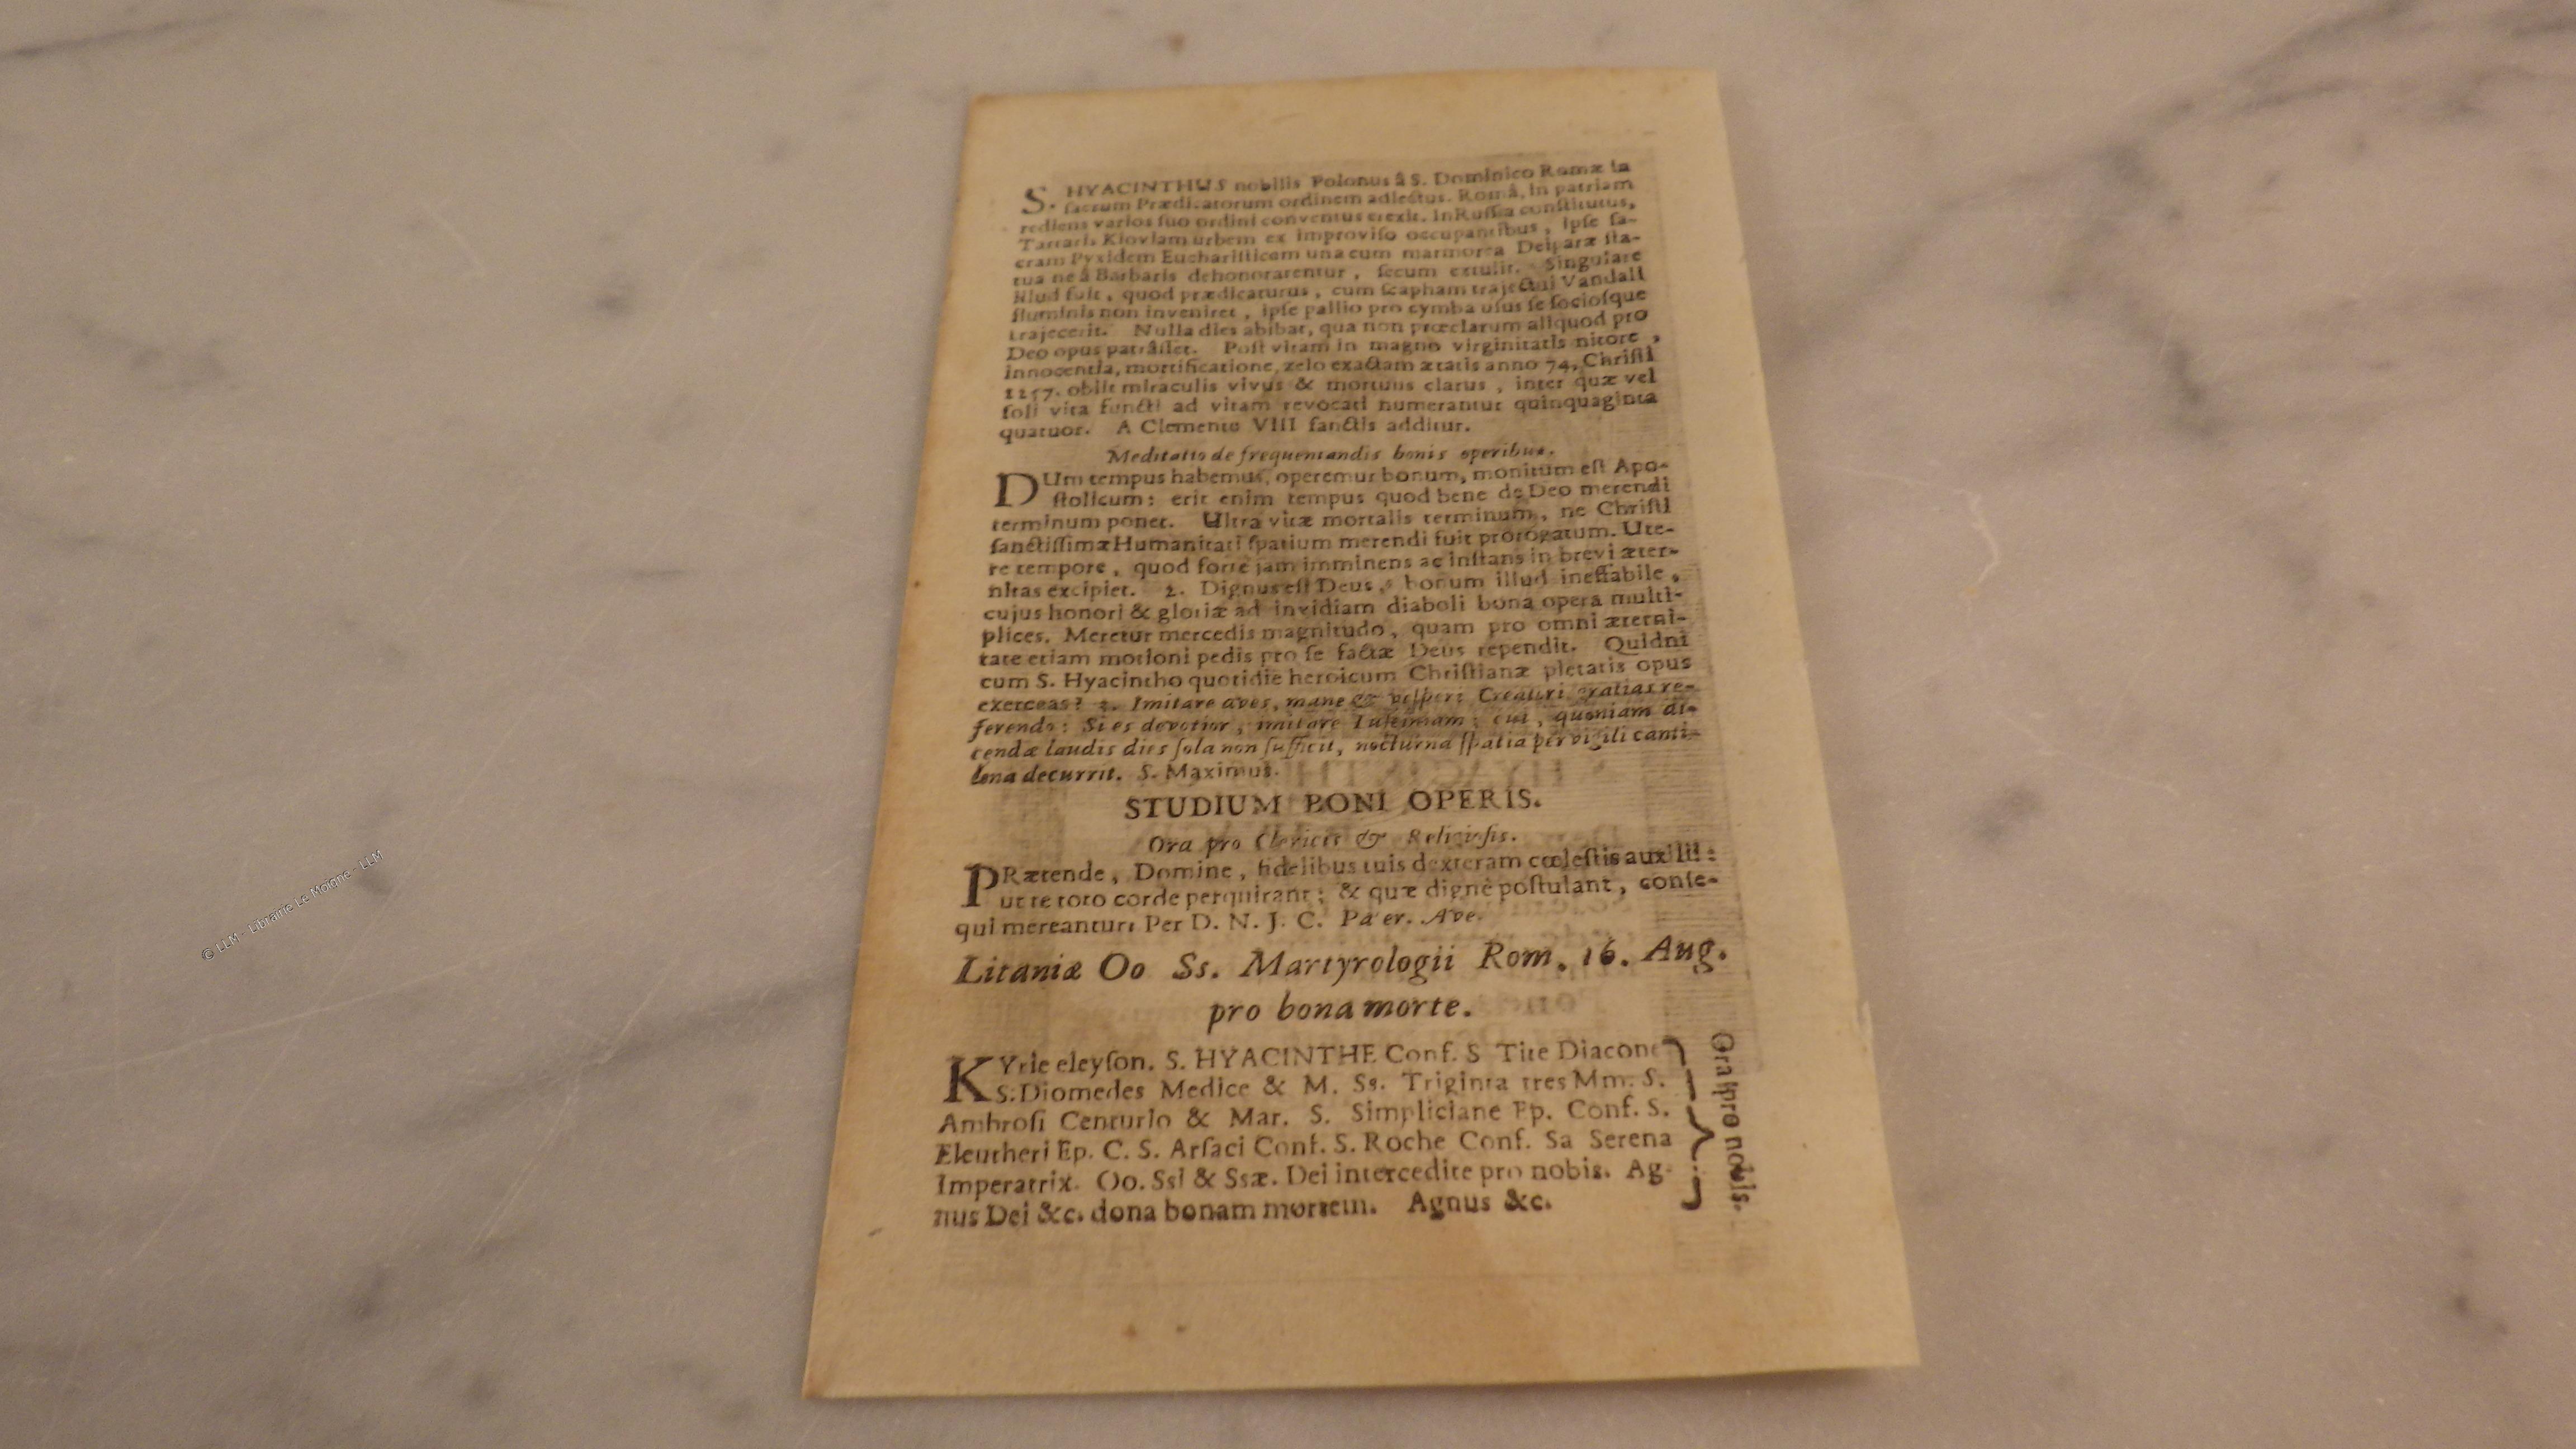 S. HYACINTHUS nobilis Polonus â S. Dominico Romæ in
sacrum Prædicatorum ordinem adlectus. Româ, in patriam
rediens varios suo ordini conventus erexit. In Russia constitutus,
Tartaris Kioviam urbem ex improviso occupantibus, ipse sa-
cram Pyxidem Eucharisticam una cum marmorea Deiparæ sta-
tua ne â Barbaris dehonorarentur, secum extulit. Singulare
illud fuit, quod prædicaturus, cum scapham trajectui Vandali
fluminis non inveniret, ipse pallio pro cymba usus se sociosque
trajecerit. Nulla dies abibat, qua non præclarum aliquod pro
Deo opus patrâsset. Post vitam in magno virginitatis nitore,
innocentia, mortificatione, zelo exactam ætatis anno 74, Christi
1257. obiit miraculis vivus & mortuus clarus, inter quæ vel
soli vita functi ad vitam revocati numerantur quinquaginta
quatuor. A Clemente VIII sanctis additur.
Meditatio de frequentandis bonis operibus.
DUm tempus habemus, operemur bonum, monitum est Apo-
stolicum: erit enim tempus quod bene de Deo merendi
terminum ponet. Ultra vitæ mortalis terminum, ne Christi
sanctissimæ Humanitati spatium merendi fuit prorogatum. Ute-
re tempore, quod forte jam imminens ac instans in brevi æter-
nitas excipiet. 2. Dignus est Deus, bonum illud ineffabile,
cujus honori & gloriæ ad invidiam diaboli bona opera multi-
plices. Meretur mercedis magnitudo, quam pro omni æterni-
tate etiam motioni pedis pro se factæ Deus rependit. Quidni
cum S. Hyacintho quotidie heroicum Christianæ pietatis opus
exerceas? 3. Imitare aves, mane & vesperi Creatori gratias re-
ferendo: Si es devotior, imitare Lusciniam: cui, quoniam di-
cendæ laudis dies sola non sufficit, nocturna spatia pervigili canti-
lena decurrit. S. Maximus.
STUDIUM BONI OPERIS.
Ora pro Clericis & Religiosis.
PRætende, Domine, fidelibus tuis dexteram cœlestis auxilii:
ut te toto corde perquirant; & quæ dignè postulant, conse-
qui mereantur: Per D. N. J. C. Pater. Ave.
Litaniæ Oo Ss. Martyrologii Rom. 16. Aug.
pro bona morte.
KYrie eleyson. S. HYACINTHE Conf. S Tite Diacone
S. Diomedes Medice & M. Ss. Triginta tres Mm. S.
Ambrosi Centurio & Mar. S. Simpliciane Ep. Conf. S.
Eleutheri Ep. C. S. Arsaci Conf. S. Roche Conf. Sa Serena
Imperatrix. Oo. Ssi & Ssæ. Dei intercedite pro nobis. Ag-
nus Dei &c. dona bonam mortem. Agnus &c.
Ora pro nobis.
© LLM - Librairie Le Moigne - LLM